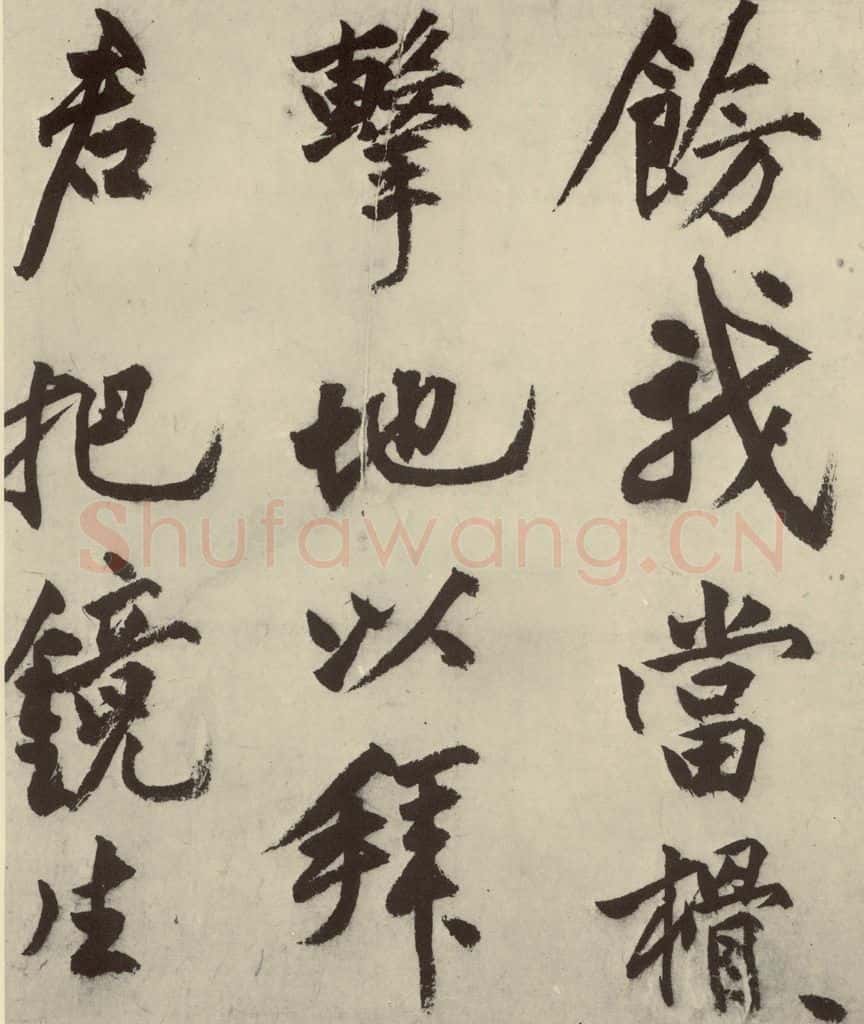 餝我當榾、
擊地以拜
君把鏡生
Shufawang.CN